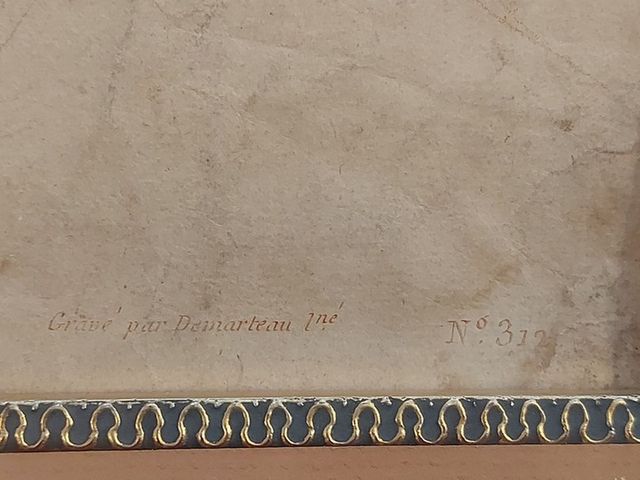 Gravé par Demarteau l'né
Nº. 312